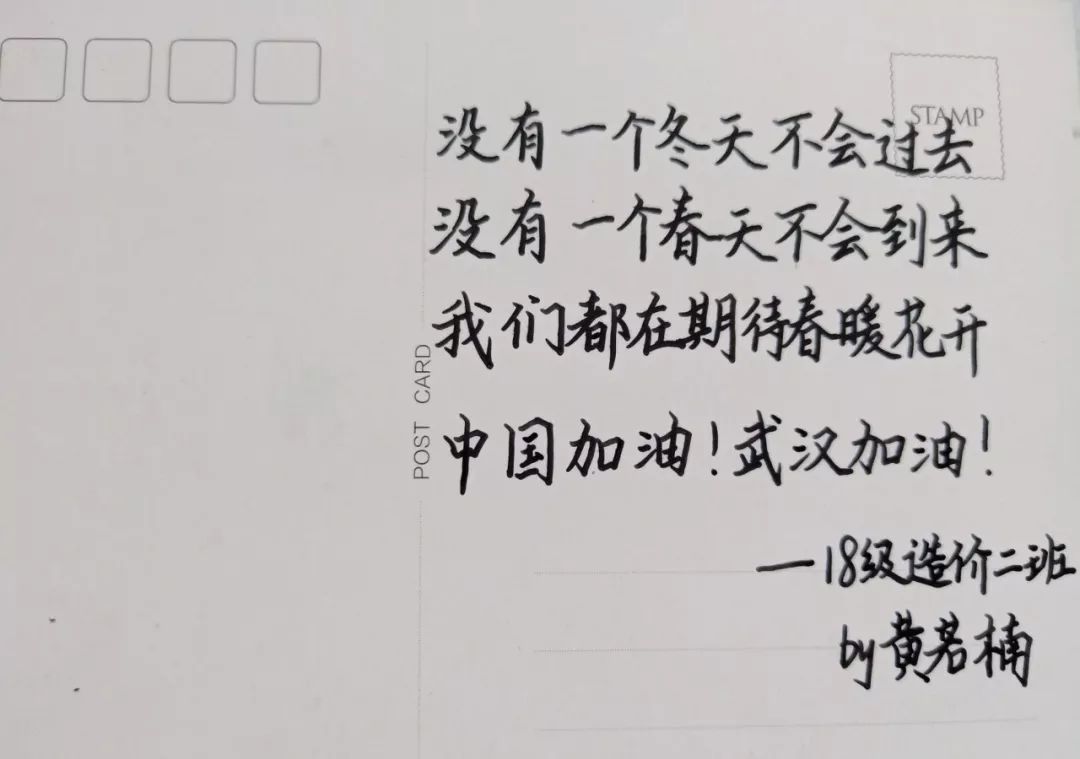 STAMP
没有一个冬天不会过去
没有一个春天不会到来
我们都在期待春暖花开
POST CARD
中国加油!武汉加油!
—18级造价二班
by黄若楠